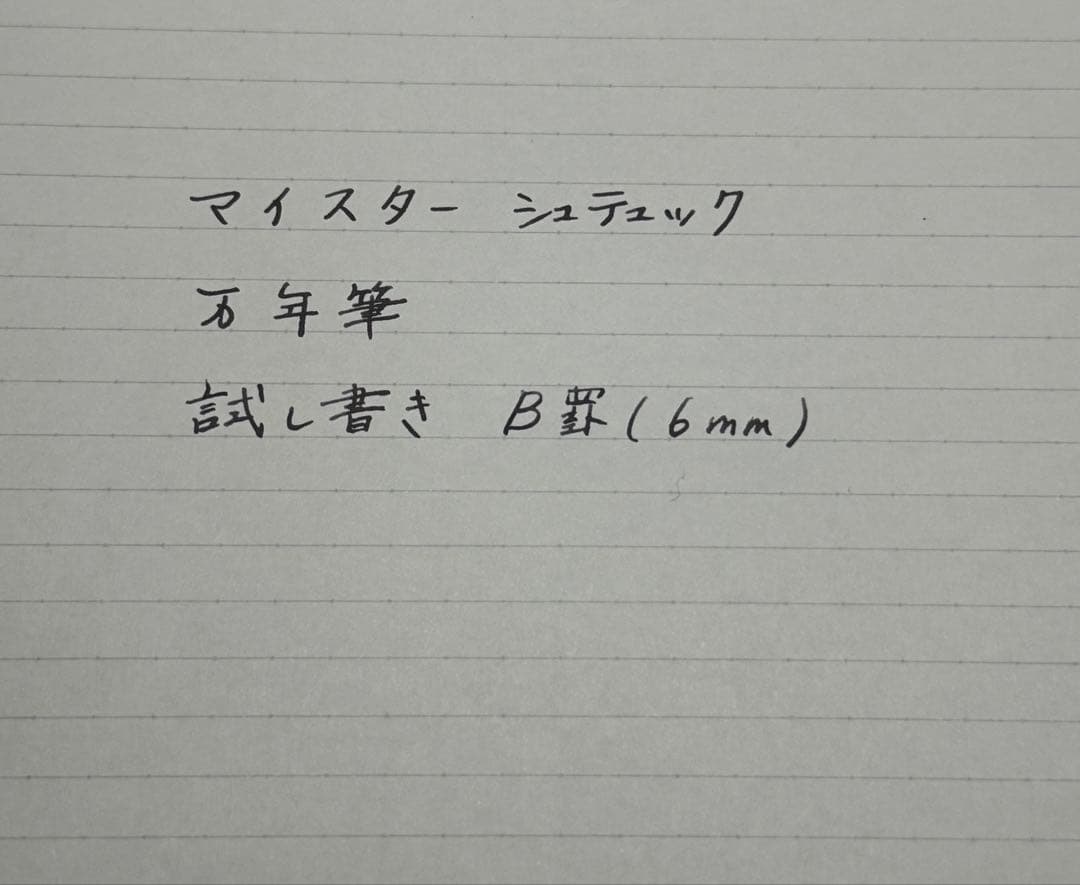 マイスター シュテュック
万年筆
試し書き B罫(6mm)